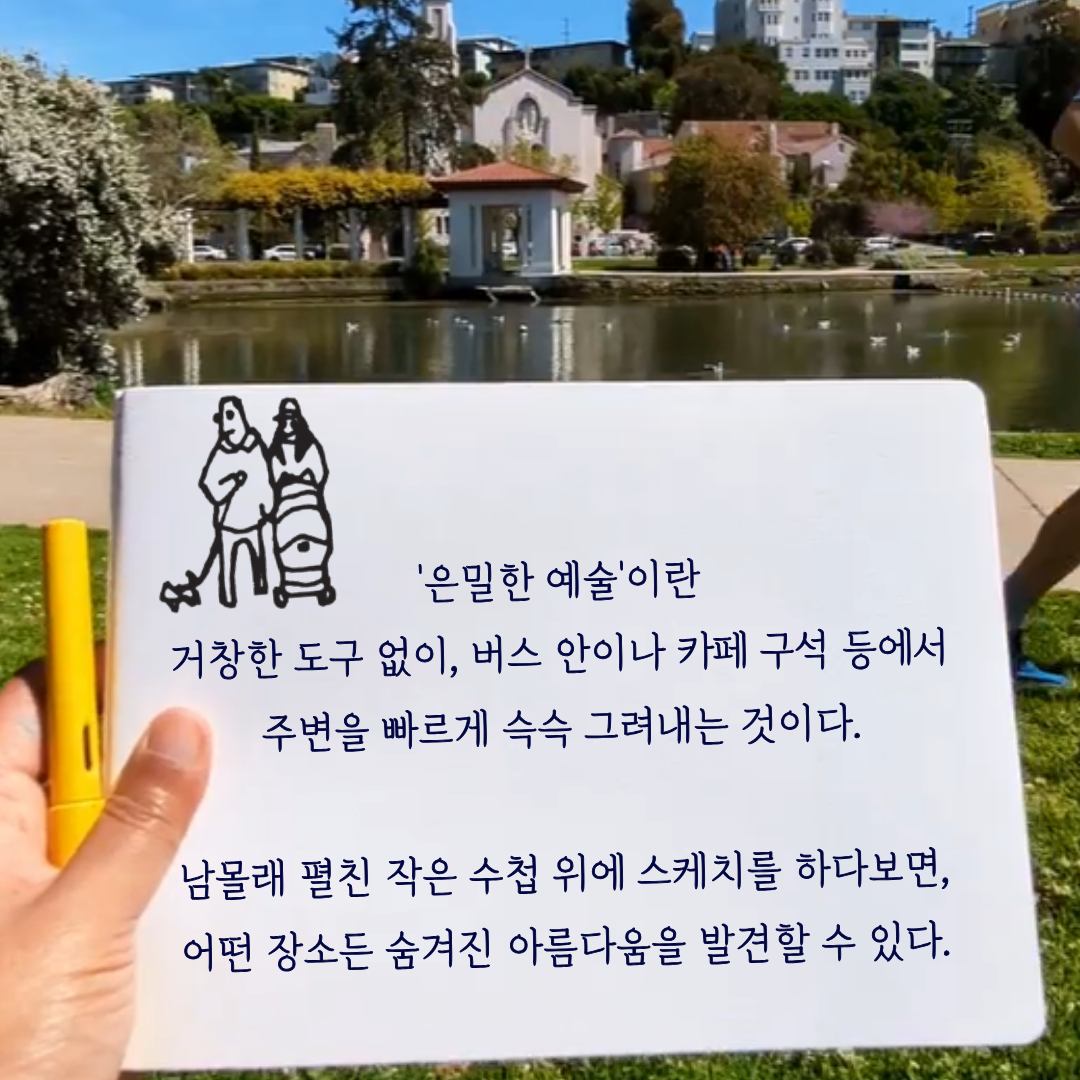 '은밀한 예술'이란
거창한 도구 없이, 버스 안이나 카페 구석 등에서
주변을 빠르게 슥슥 그려내는 것이다.
남몰래 펼친 작은 수첩 위에 스케치를 하다보면,
어떤 장소든 숨겨진 아름다움을 발견할 수 있다.